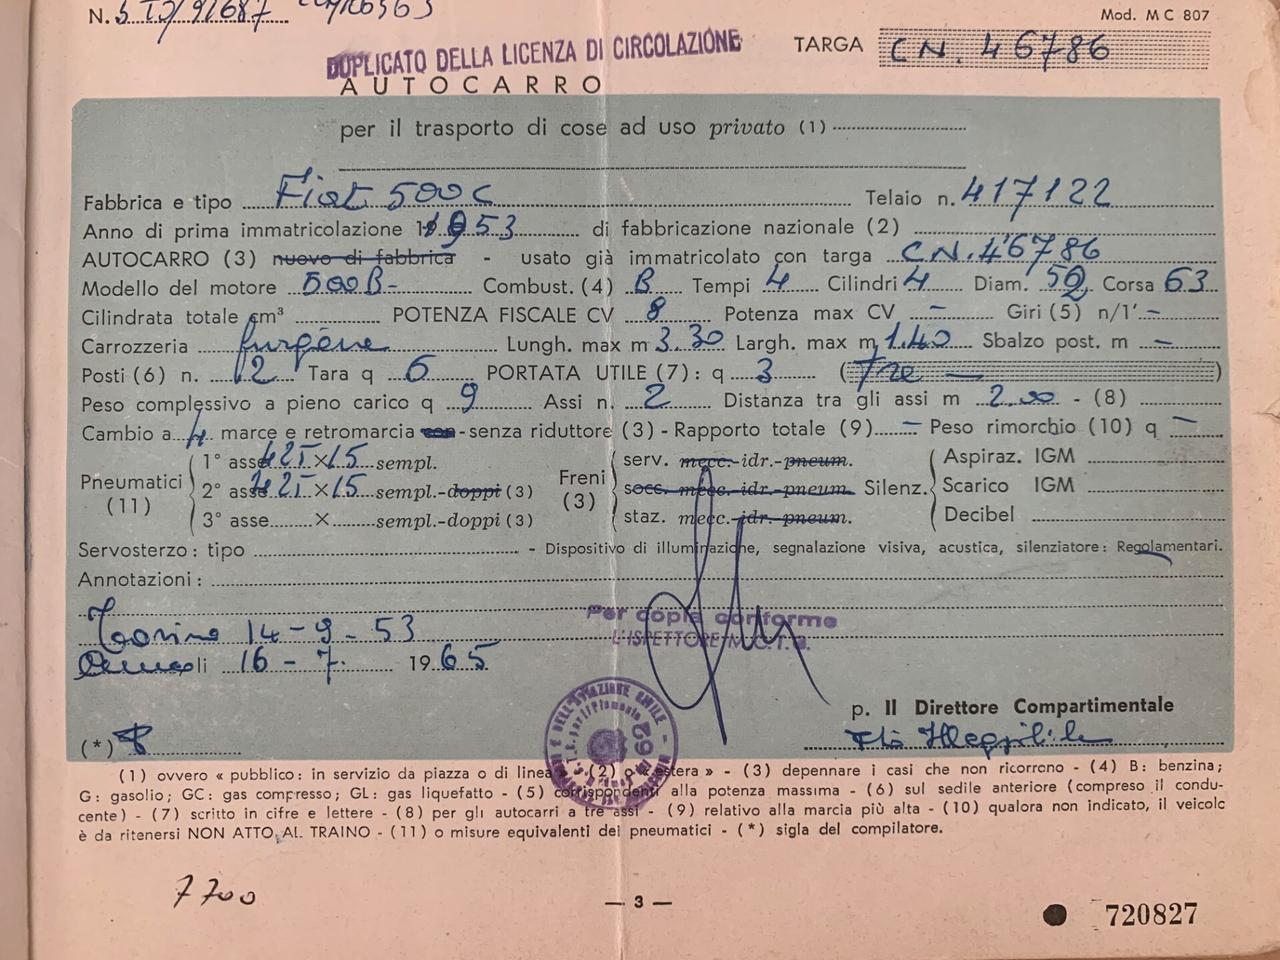 N.
Mod. M C 807
DUPLICATO DELLA LICENZA DI CIRCOLAZIONE
TARGA CN. 46786
AUTOCARRO
per il trasporto di cose ad uso privato (1)
Fabbrica e tipo Fiat 500 C Telaio n. 417122
Anno di prima immatricolazione 1953 di fabbricazione nazionale (2)
AUTOCARRO (3) nuovo di fabbrica - usato già immatricolato con targa CN. 46786
Modello del motore 500 B- Combust. (4) B Tempi 4 Cilindri 4 Diam. 52 Corsa 63
Cilindrata totale cm³ POTENZA FISCALE CV 8 Potenza max CV – Giri (5) n/1' –
Carrozzeria furgone Lungh. max m 3.30 Largh. max m 1.40 Sbalzo post. m –
Posti (6) n. 2 Tara q 6 PORTATA UTILE (7): q 3 (Tre —)
Peso complessivo a pieno carico q 9 Assi n. 2 Distanza tra gli assi m 2.00 - (8)
Cambio a 4 marce e retromarcia con-senza riduttore (3) - Rapporto totale (9) – Peso rimorchio (10) q –
Pneumatici (11)
1° asse 425 × 15 sempl.
2° asse 425 × 15 sempl.-doppi (3)
3° asse × sempl.-doppi (3)
Freni (3)
serv. mecc.-idr.-pneum.
socc. mecc.-idr.-pneum.
staz. mecc.-idr.-pneum.
Silenz.
Aspiraz. IGM
Scarico IGM
Decibel
Servosterzo: tipo - Dispositivo di illuminazione, segnalazione visiva, acustica, silenziatore: Regolamentari.
Annotazioni:
Per copia conforme
L'ISPETTORE M.C.T.C.
Torino 14-9-53
li 16-7- 1965
p. Il Direttore Compartimentale
(*)
(1) ovvero « pubblico: in servizio da piazza o di linea » - (2) o « estera » - (3) depennare i casi che non ricorrono - (4) B: benzina;
G: gasolio; GC: gas compresso; GL: gas liquefatto - (5) corrispondenti alla potenza massima - (6) sul sedile anteriore (compreso il condu-
cente) - (7) scritto in cifre e lettere - (8) per gli autocarri a tre assi - (9) relativo alla marcia più alta - (10) qualora non indicato, il veicolo
è da ritenersi NON ATTO AL TRAINO - (11) o misure equivalenti dei pneumatici - (*) sigla del compilatore.
7700
— 3 —
720827